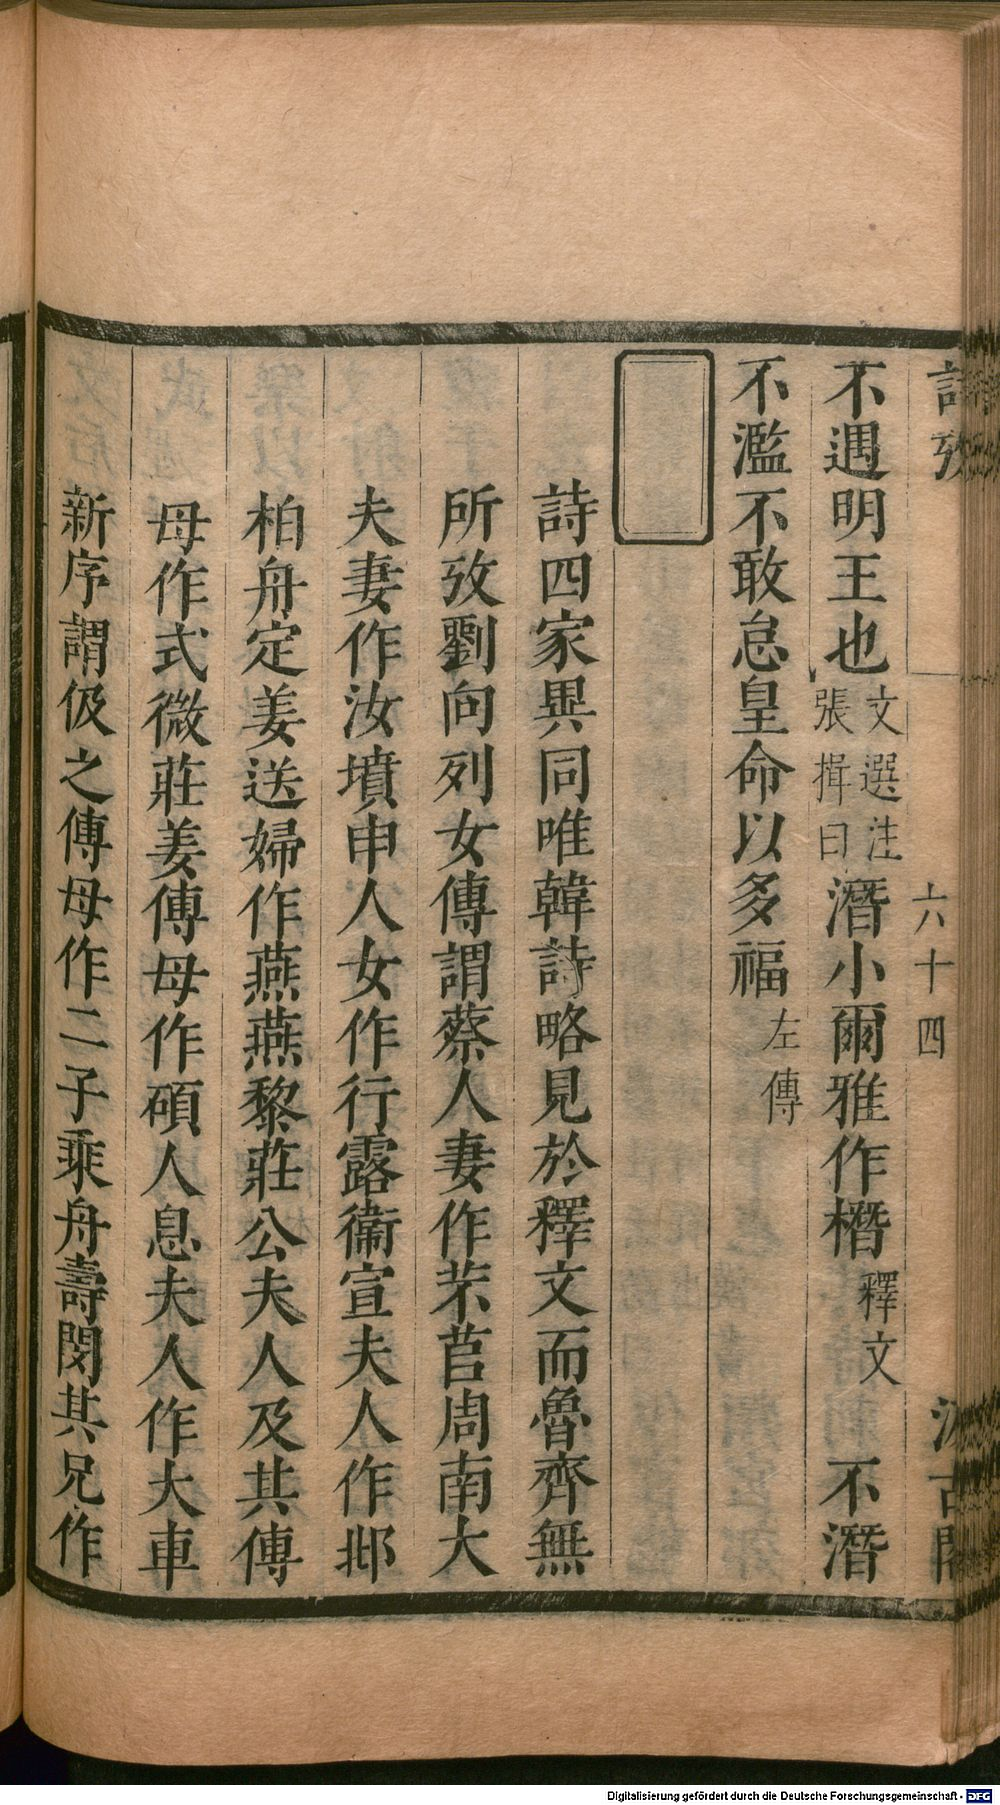 詩攷
六十四
汲古閣
不遇明王也文選注張揖曰潛小爾雅作橬釋文 不潛
不濫不敢怠皇命以多福左傳
詩四家異同唯韓詩略見於釋文而魯齊無
所攷劉向列女傳謂蔡人妻作芣苢周南大
夫妻作汝墳申人女作行露衞宣夫人作邶
柏舟定姜送婦作燕燕黎莊公夫人及其傅
母作式微莊姜傅母作碩人息夫人作大車
新序謂伋之傅母作二子乘舟壽閔其兄作
Digitalisierung gefördert durch die Deutsche Forschungsgemeinschaft - DFG